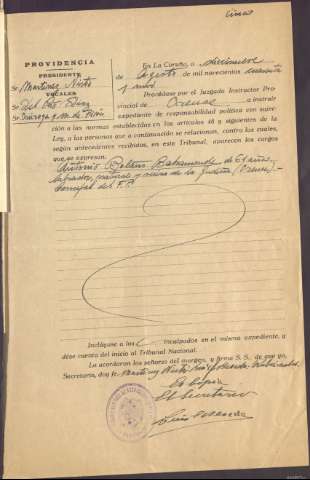 cinco
PROVIDENCIA
PRESIDENTE
Sr. Martinez Nieto
VOCALES
Sr. Del Rio Diaz
Sr.
En La Coruña, a diecinueve
de Agosto de mil novecientos cuarenta
y uno
Procédase por el Juzgado Instructor Pro-
vincial de Orense a instruir
expediente de responsabilidad política con suje-
ción a las normas establecidas en los artículos 48 y siguientes de la
Ley, a las personas que a continuación se relacionan, contra las cuales,
según antecedentes recibidos, en este Tribunal, aparecen los cargos
que se expresan.
Antonio Beltrán Bahamonde de 61 años
labrador, natural y vecino de la Gudiña (Orense).-
Concejal del F.P.
Inclúyase a los inculpados en el mismo expediente, a
dése cuenta del inicio al Tribunal Nacional.
La acordaron los señores del margen, y firma S. S. de que yo,
Secretario, doy fe. Martinez Nieto
Es copia
El Secretario